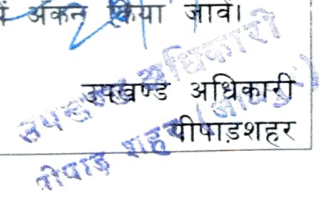 में अंकन किया जावें।
उपखण्ड अधिकारी
पीपाड़शहर
उपखण्ड अधिकारी
पीपाड़ शहर (जोधपुर)